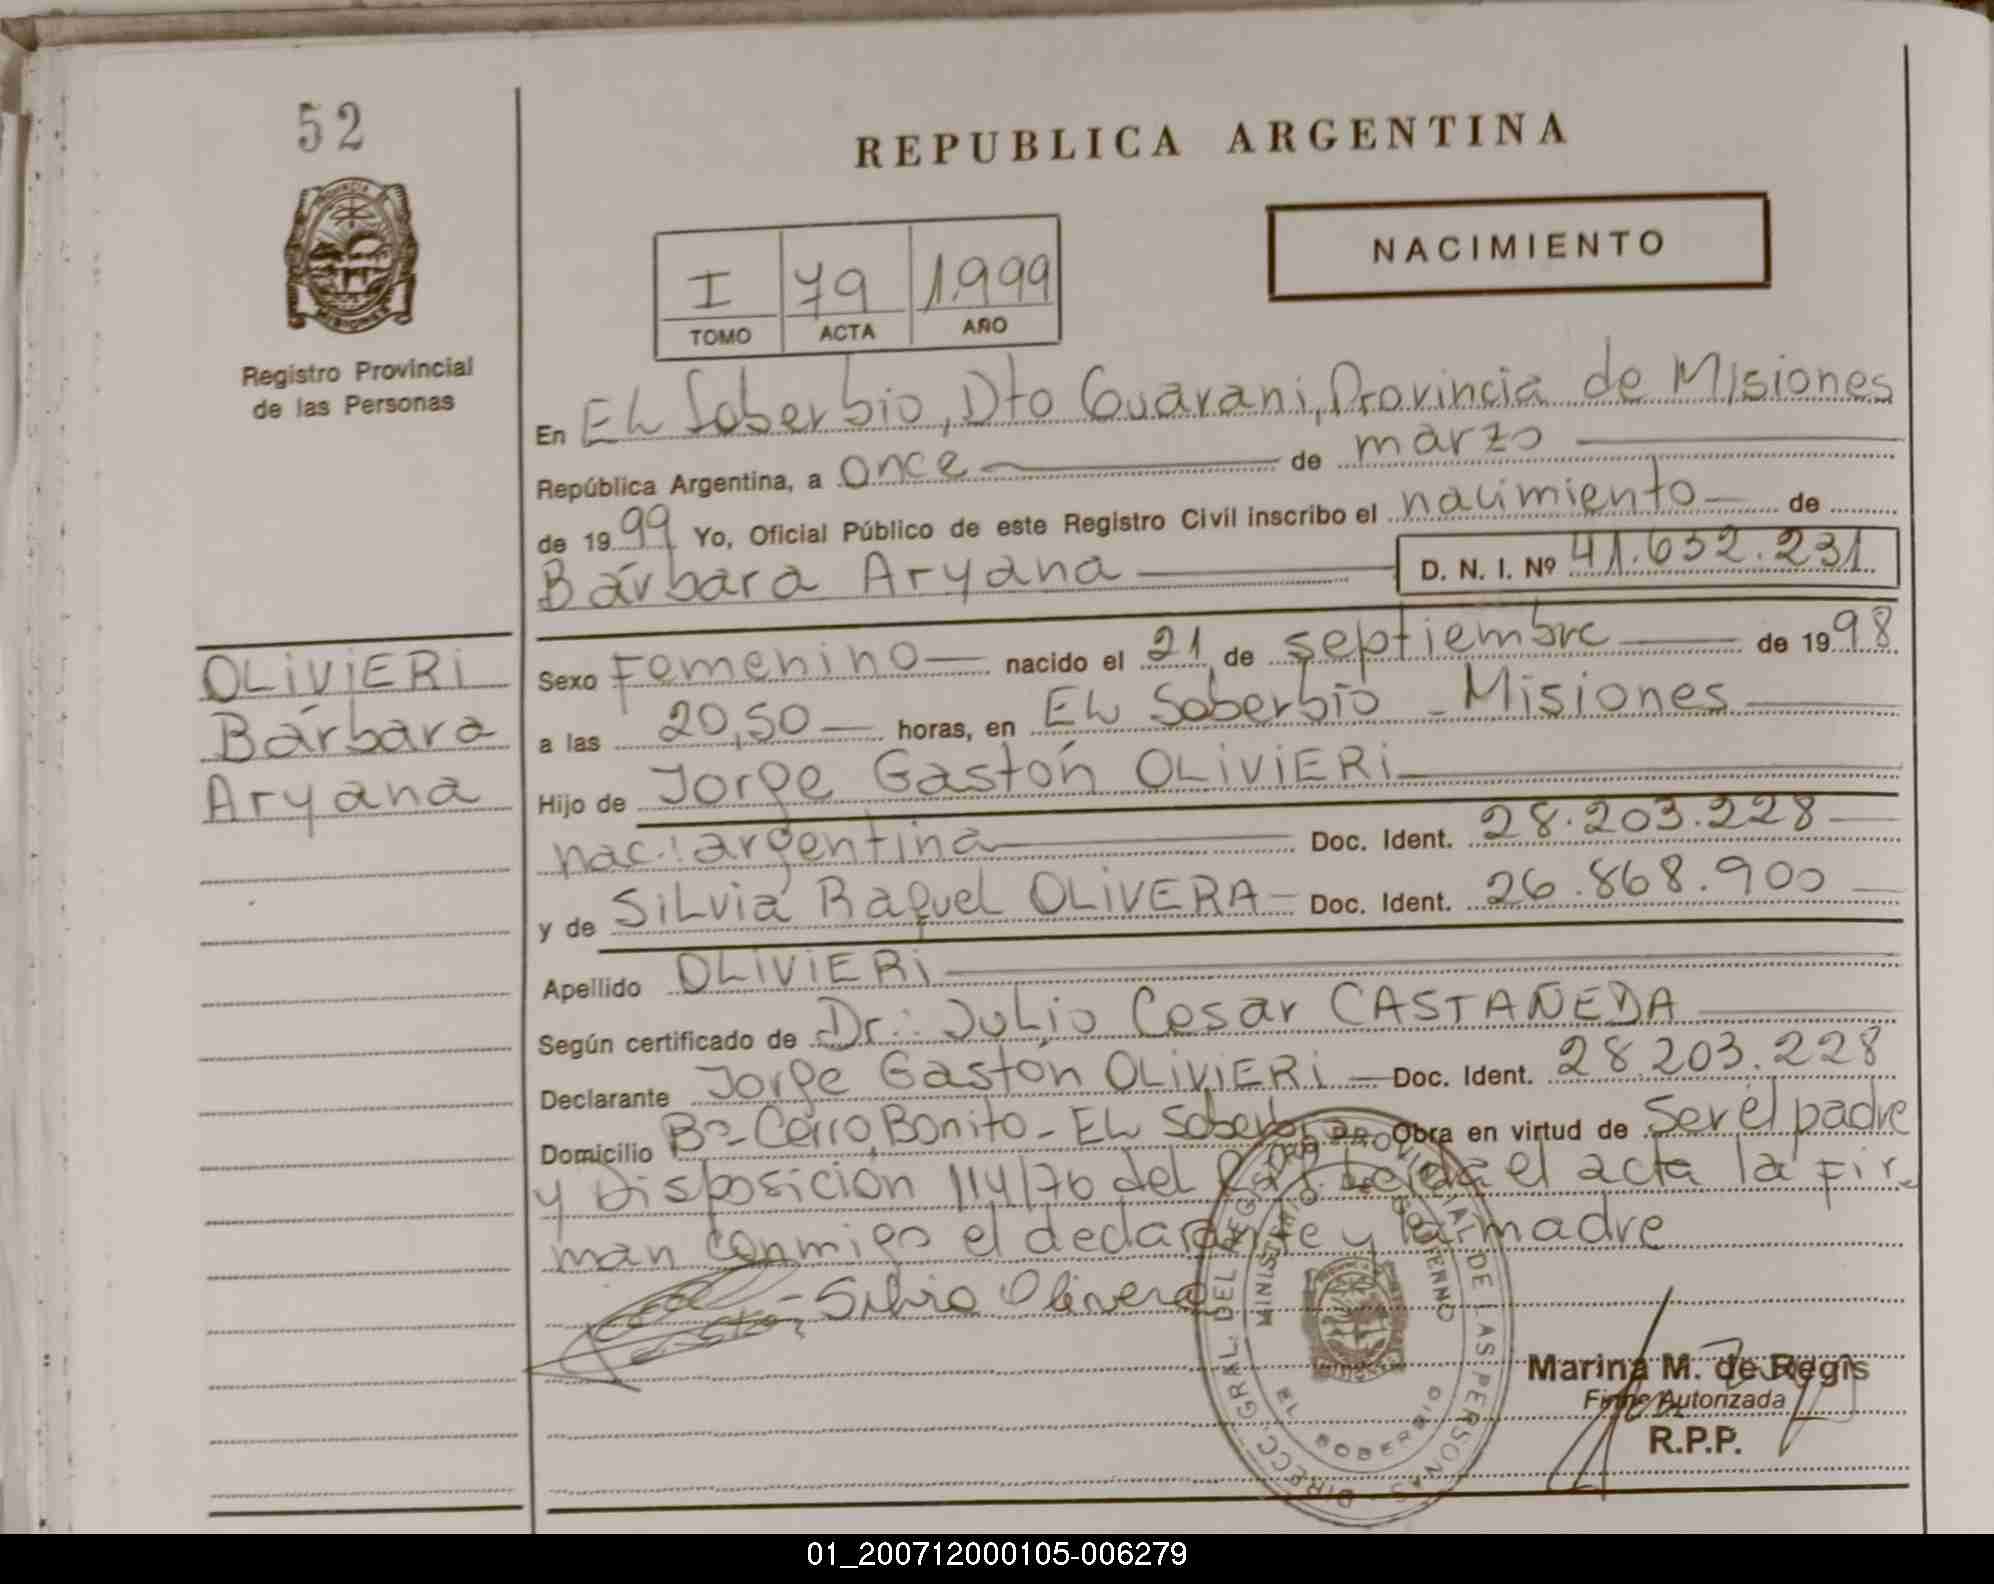 52
REPUBLICA ARGENTINA
NACIMIENTO
I 79 1.999
TOMO ACTA AÑO
PROVINCIA
MISIONES
Registro Provincial
de las Personas
En EL Soberbio, Dto Guarani, Provincia de Misiones
República Argentina, a once de marzo
de 1999 Yo, Oficial Público de este Registro Civil inscribo el nacimiento de
Bárbara Aryana D. N. I. Nº 41.632.231
OLIVIERI
Bárbara
Aryana
Sexo Femenino nacido el 21 de septiembre de 1998
a las 20,50 horas, en EL Soberbio - Misiones
Hijo de Jorge Gastón OLIVIERI
nac.: argentina Doc. Ident. 28.203.228
y de Silvia Raquel OLIVERA Doc. Ident. 26.868.900
Apellido OLIVIERI
Según certificado de Dr.: Julio Cesar CASTAÑEDA
Declarante Jorge Gastón OLIVIERI Doc. Ident. 28.203.228
Domicilio Bº- Cerro Bonito - EL Soberbio Obra en virtud de ser el padre
y Disposición 114/76 del el acta la fir-
man conmigo el declarante y la madre
Silvia Olivera
DIRECC. GRAL. DEL REGISTRO PROVINCIAL DE LAS PERSONAS
MINISTERIO DE GOBIERNO
EL SOBERBIO
MISIONES
Marina M. de Regis
Firma Autorizada
R.P.P.
01_200712000105-006279